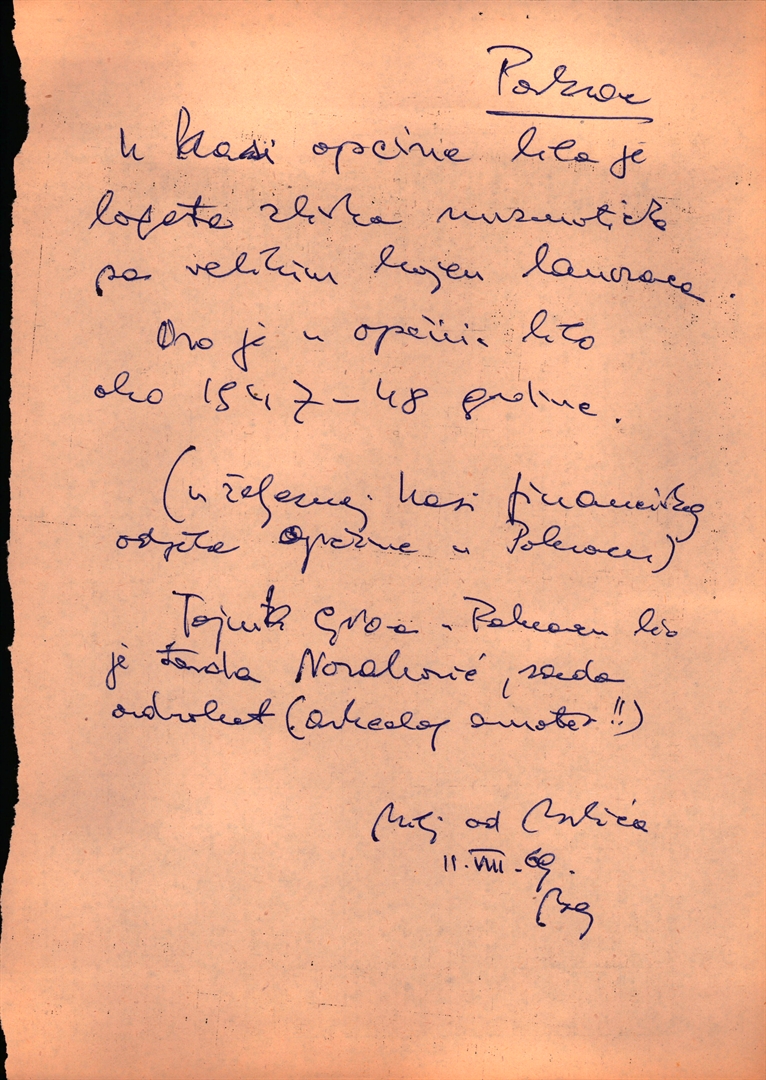 Pakrac
U kasi općine bila je
bogata zbirka numizmatička
sa velikim brojem komada.
Ovo je u općini bilo
oko 1947-48 godine.
(u željeznoj kasi financijskog
odjela Općine u Pakracu)
Tajnik u Pakracu bio
je tada Novaković, sada
advokat (arheolog amater!!)
od
11.VIII.69.